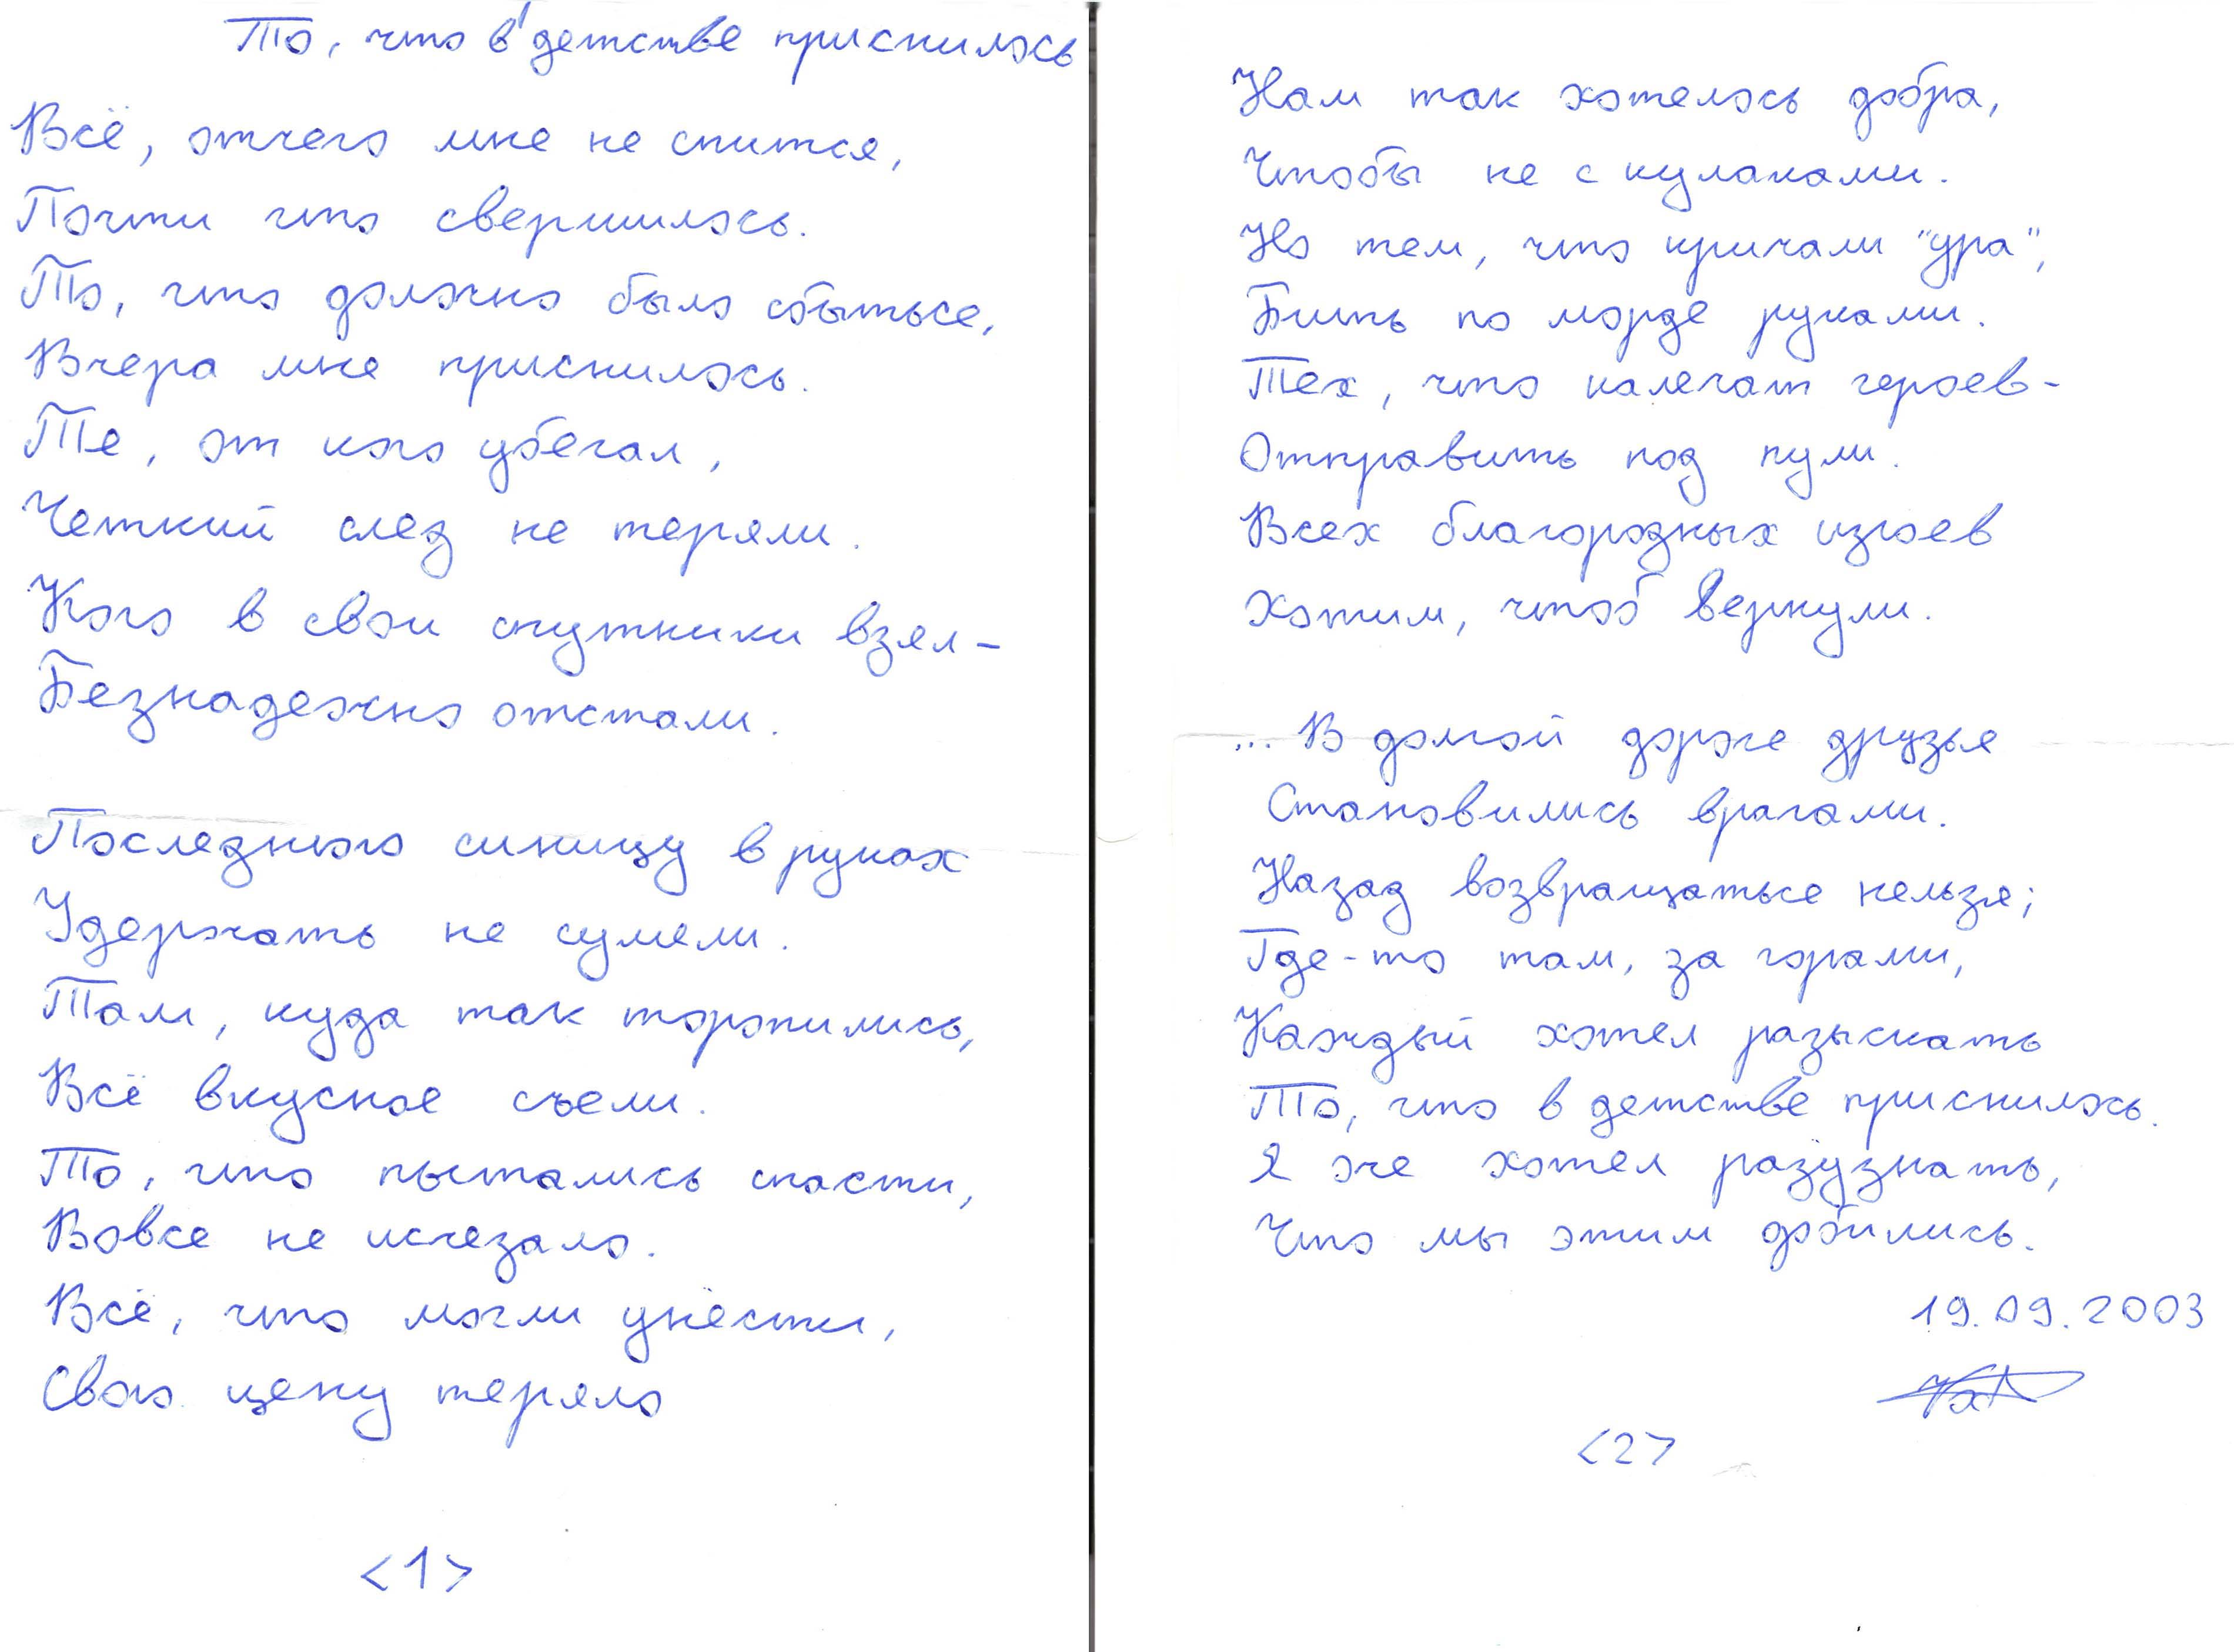 То, что в детстве приснилось
Всё, отчего мне не спится,
Почти что свершилось.
То, что должно было сбыться,
Вчера мне приснилось.
Те, от кого убегал,
Четкий след не теряли.
Кого в свои спутники взял-
Безнадежно отстали.
Последнюю синицу в руках
Удержать не сумели.
Там, куда так торопились,
Всё вкусное съели.
То, что пытались спасти,
Вовсе не исчезало.
Всё, что могли унести,
Свою цену теряло
<1>
Нам так хотелось добра,
Чтобы не с кулаками.
Но тем, что кричали "ура",
Бить по морде руками.
Тех, что калечат героев-
Отправить под пули.
Всех благородных изгоев
Хотим, чтоб вернули.
... В долгой дороге друзья
Становились врагами.
Назад возвращаться нельзя;
Где-то там, за горами,
Каждый хотел разыскать
То, что в детстве приснилось.
Я же хотел разузнать,
Что мы этим добились.
19.09.2003
<2>